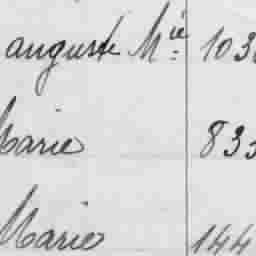 auguste Mie 103
Marie 833
Marie 144